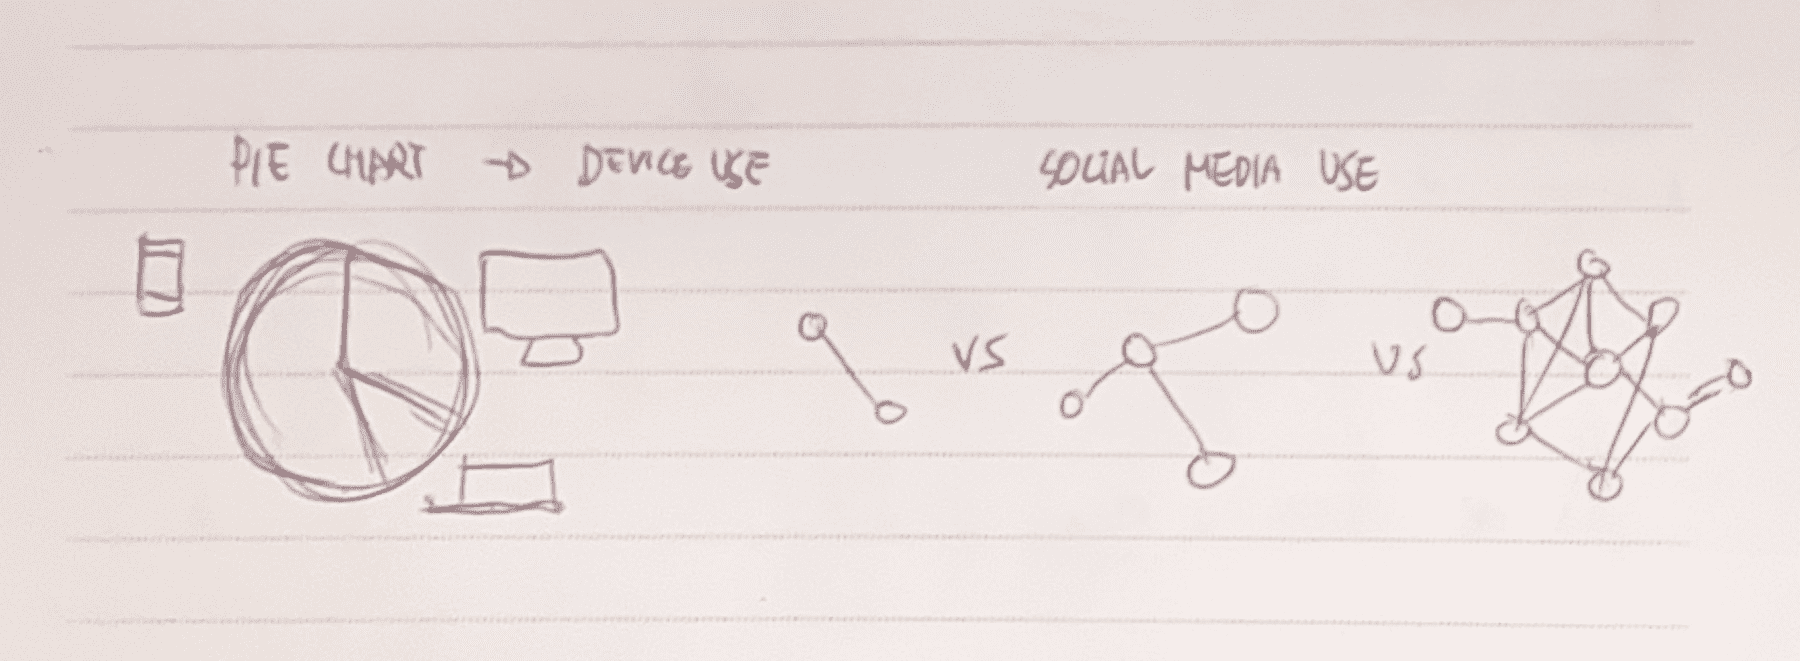 PIE CHART → DEVICE USE
SOCIAL MEDIA USE
VS
VS